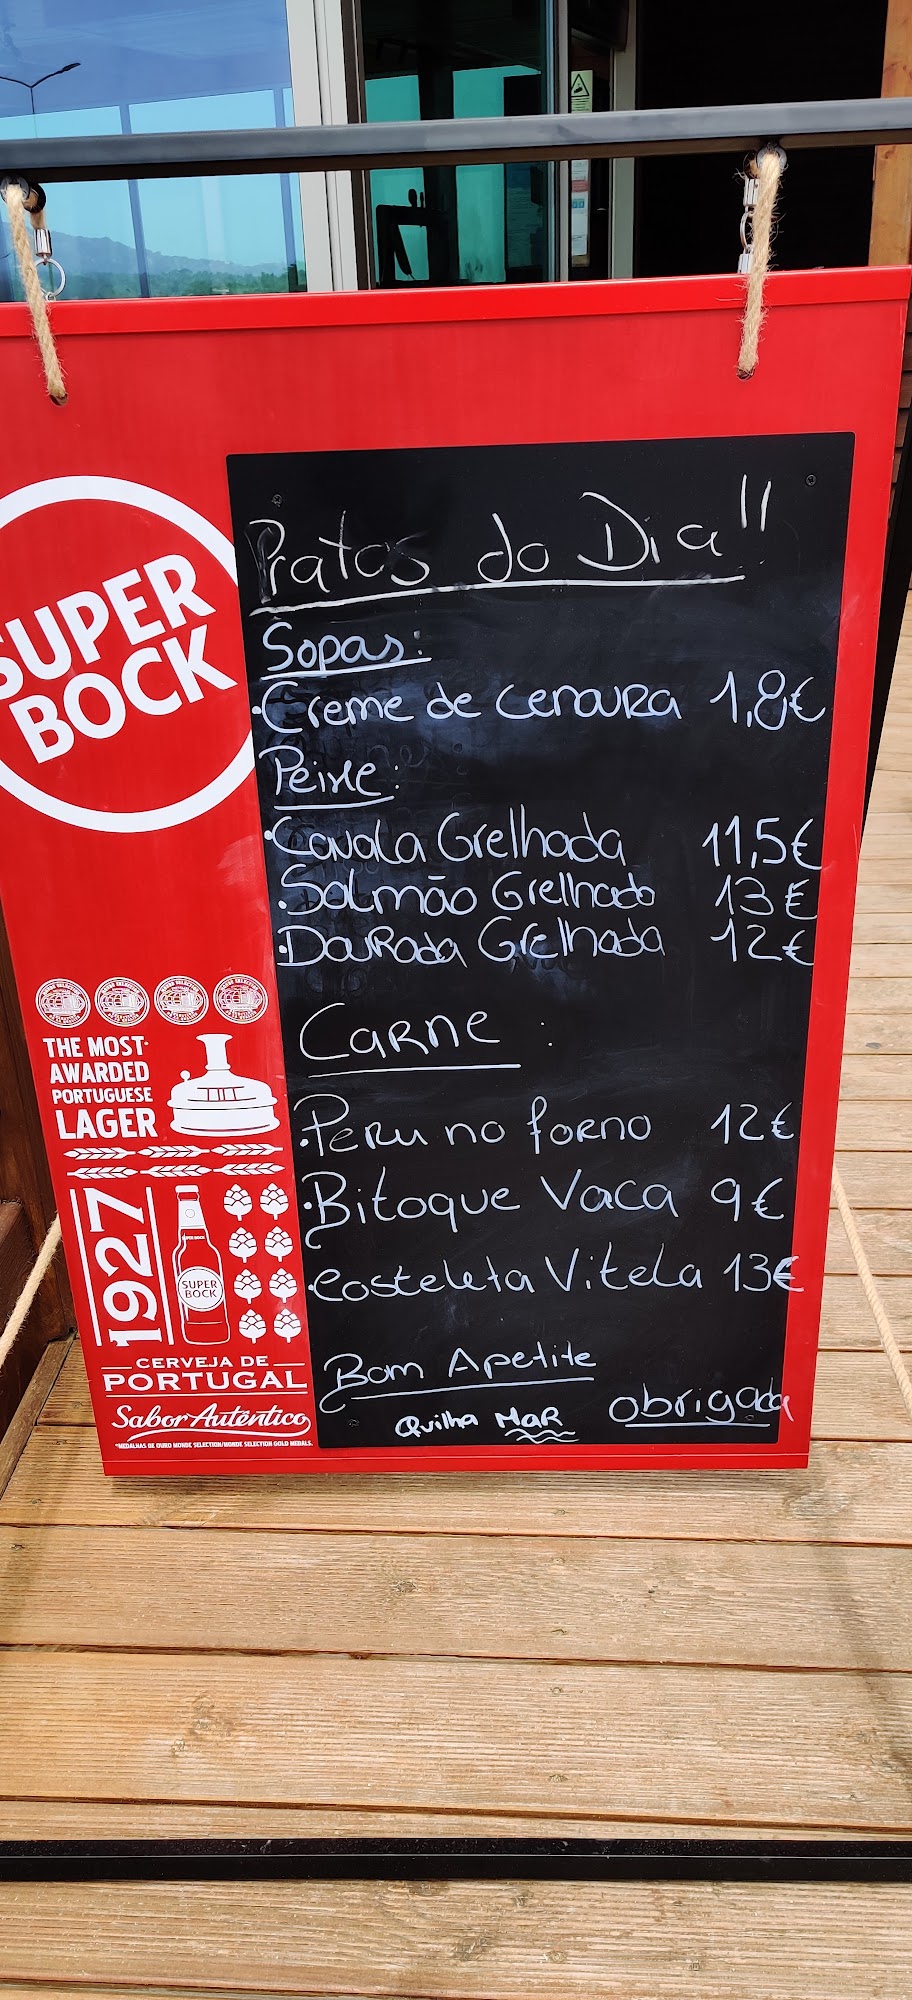 Pratos do Dia!!
Sopas:
.Creme de cenoura 1,8€
Peixe:
.Cavala Grelhada 11,5€
.Salmão Grelhado 13€
.Dourada Grelhada 12€
Carne :
.Peru no forno 12€
.Bitoque Vaca 9€
.Costeleta Vitela 13€
Bom Apetite
Quilha Mar obrigada
SUPER
BOCK
THE MOST
AWARDED
PORTUGUESE
LAGER
1927
SUPER BOCK
SUPER
BOCK
CERVEJA DE
PORTUGAL
Sabor Autêntico
*MEDALHAS DE OURO MONDE SELECTION/MONDE SELECTION GOLD MEDALS.